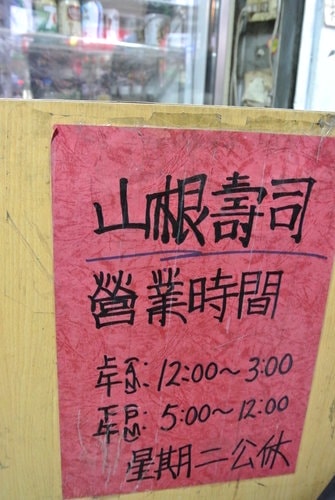 山根壽司
營業時間
上午: 12:00~3:00
下午: 5:00~12:00
星期二公休